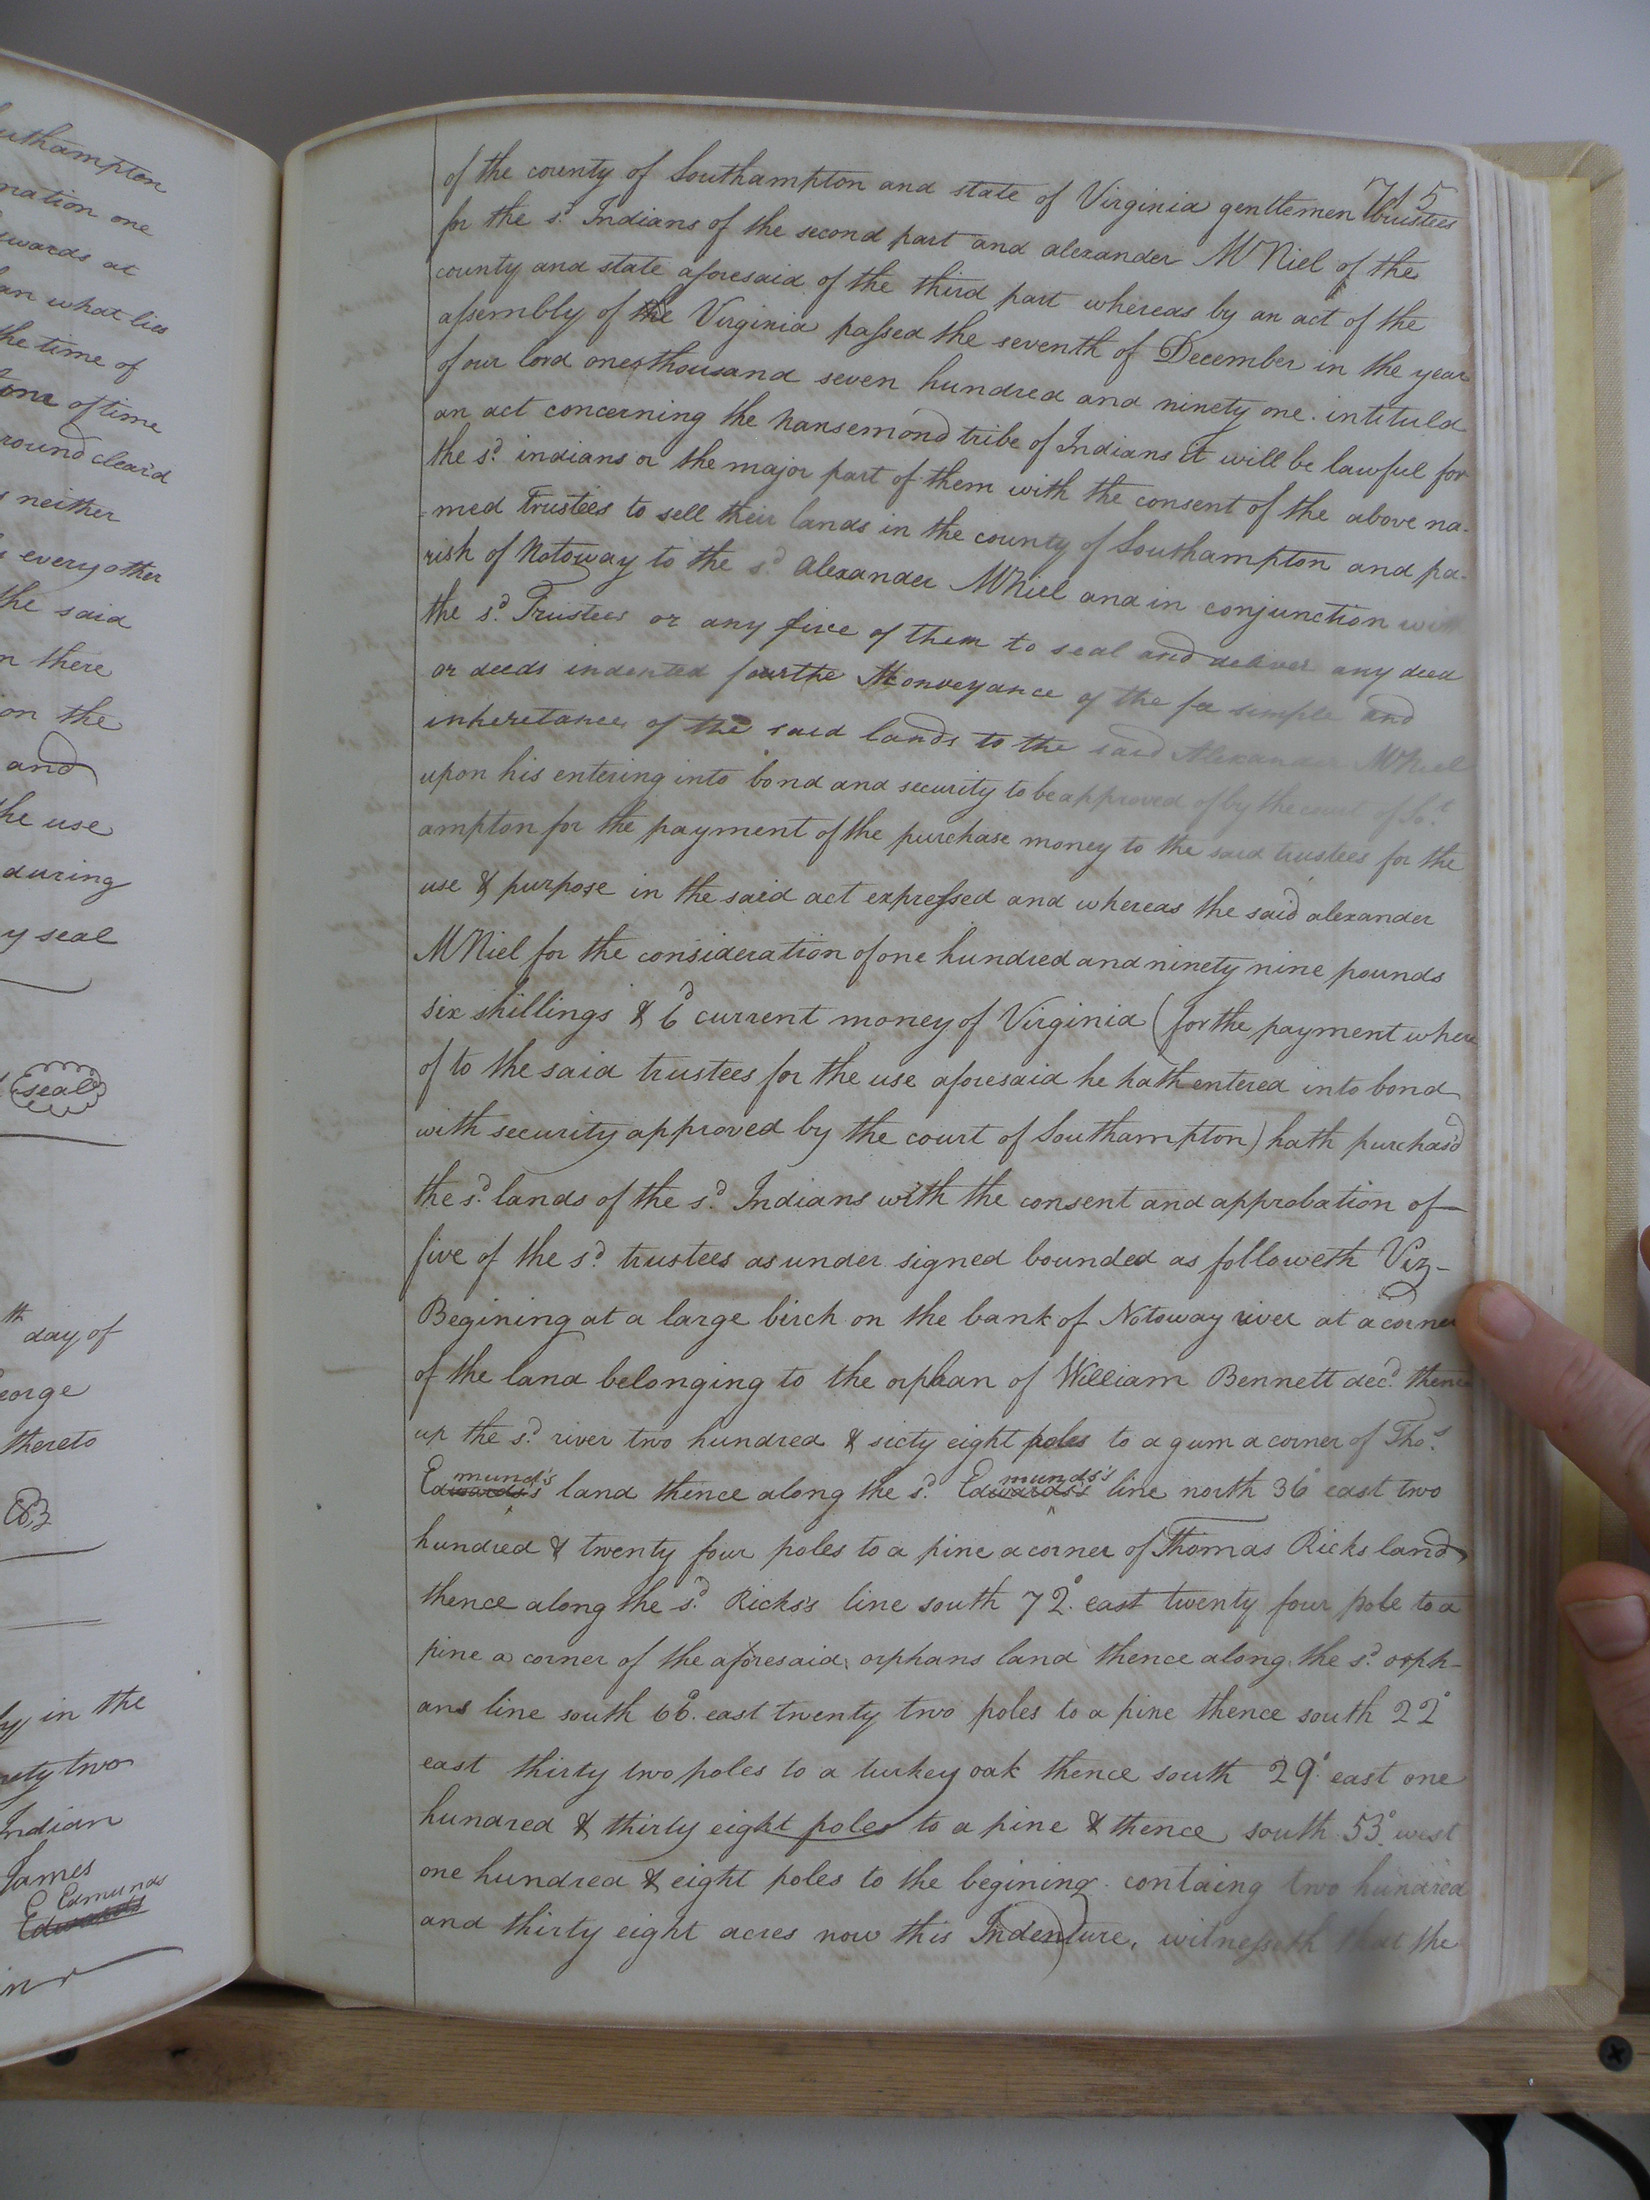 uthampton
nation one
dwards at
an what lies
the time of
one of time
round clear'd
s neither
every other
the said
n there
on the
and
he use
during
y seal
seal
th day of
eorge
thereto
in the
nety two
Indian
James
C Edmunds
Edwards
715
of the county of Southampton and state of Virginia gentlemen trustees
for the sd. Indians of the second part and alexander McNiel of the
county and state aforesaid of the third part whereas by an act of the
assembly of the Virginia passed the seventh of December in the year
of our lord one thousand seven hundred and ninety one. intituld
an act concerning the Nansemond tribe of Indians it will be lawful for
the sd. indians or the major part of them with the consent of the above na-
-med Trustees to sell their lands in the county of Southampton and pa-
rish of Notoway to the sd. Alexander McNiel and in conjunction with
the sd. Trustees or any five of them to seal and deliver any deed
or deeds indented for the Conveyance of the fee simple and
inheretance of the said lands to the said Alexander McNiel
upon his entering into bond and security to be approved of by the court of So.
ampton for the payment of the purchase money to the said trustees for the
use & purpose in the said act expressed and whereas the said alexander
McNiel for the consideration of one hundred and ninety nine pounds
six shillings & 6d current money of Virginia (for the payment where
of to the said trustees for the use aforesaid he hath entered into bond
with security approved by the court of Southampton) hath purchas'd
the sd. lands of the sd. Indians with the consent and approbation of—
five of the sd. trustees as under signed bounded as followeth Viz—
Begining at a large birch on the bank of Notoway river at a corner
of the land belonging to the orphan of William Bennett decd. thence
up the sd. river two hundred & sicty eight poles to a gum a corner of Thos.
munds's munds's
Edwards's land thence along the sd. Edwards's line north 36° east two
hundred & twenty four poles to a pine a corner of Thomas Ricks land
thence along the sd. Ricks's line south 72° east twenty four pole to a
pine a corner of the aforesaid orphans land thence along the sd. orph-
ans line south 66° east twenty two poles to a pine thence south 22°
east thirty two poles to a turkey oak thence south 29° east one
hundred & thirty eight poles to a pine & thence south 53° west
one hundred & eight poles to the begining containg two hundred
and thirty eight acres now this Indenture, witnesseth that the